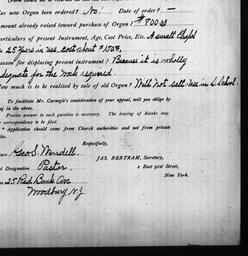 as new Organ been ordered? No. Date of order? —
mount already raised toward purchase of Organ? $700.00
articulars of present Instrument, Age, Cost Price, Etc. A small Chapel
25 Years in use, Cost about $1500.
eason for displacing present instrument? Because it is wholly
adequate for the work required.
ow much is to be realized by sale of old Organ? Will not sell. Use in S. School.
To facilitate Mr. Carnegie's consideration of your appeal, will you oblige by
ing in the above.
Precise answer to each question is necessary. The leaving of blanks may
correspondence to be filed.
Application should come from Church authorities and not from private
Respectfully,
JAS. BERTRAM, Secretary,
2 East 91st Street,
New York.
Geo. S. Wendell
d Designation Pastor,
25 Red Bank Ave
Woodbury N.J